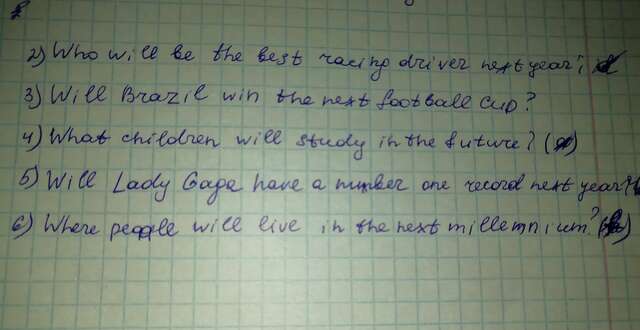 2) Who will be the best racing driver next year?
3) Will Brazil win the next football cup?
4) What children will study in the future?
5) Will Lady Gaga have a number one record next year?
6) Where people will live in the next millemnium?